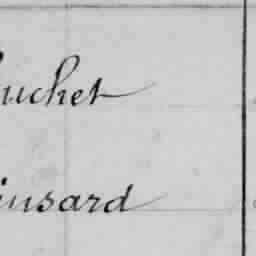 uchet
insard